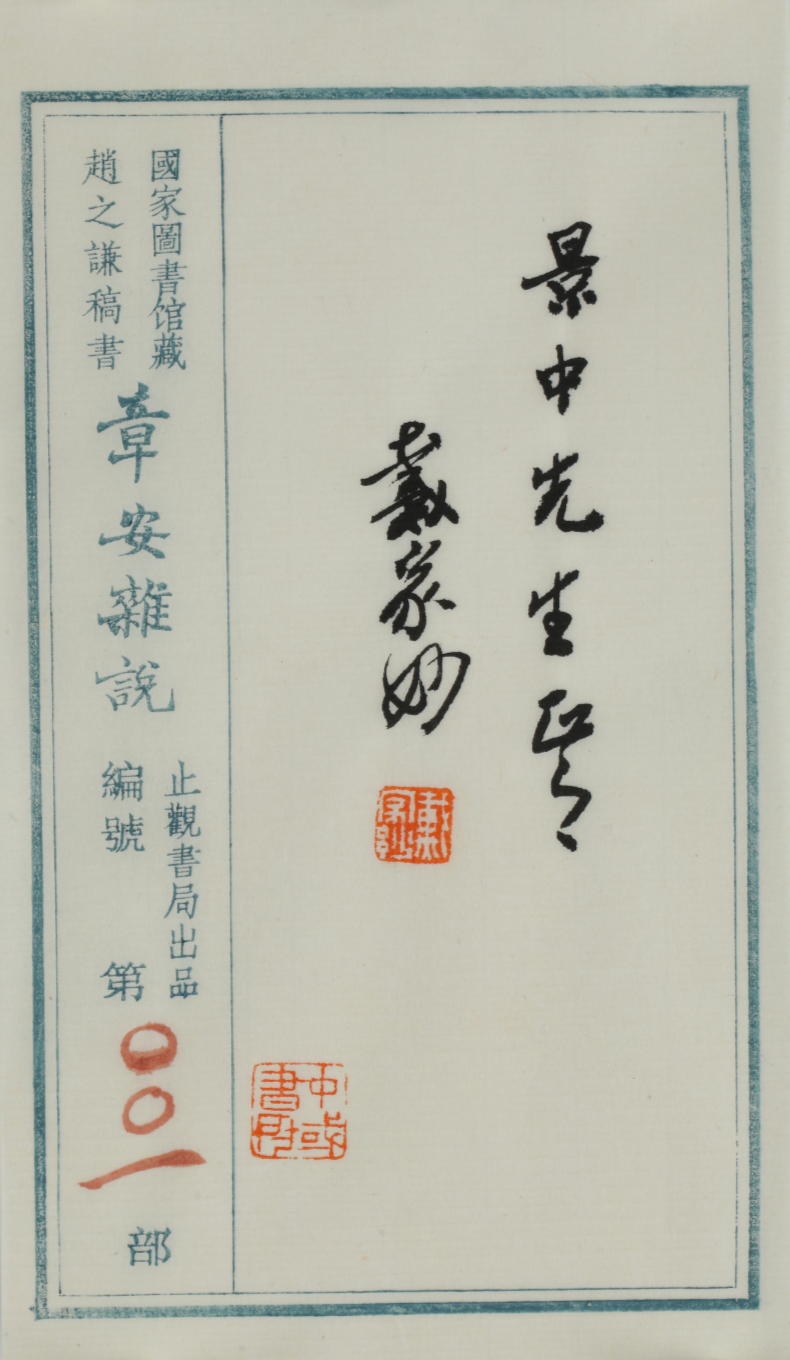 景中先生正之
戴家妙
國家圖書馆藏
趙之謙稿書
章安雜說
止觀書局出品
編號 第〇〇一部